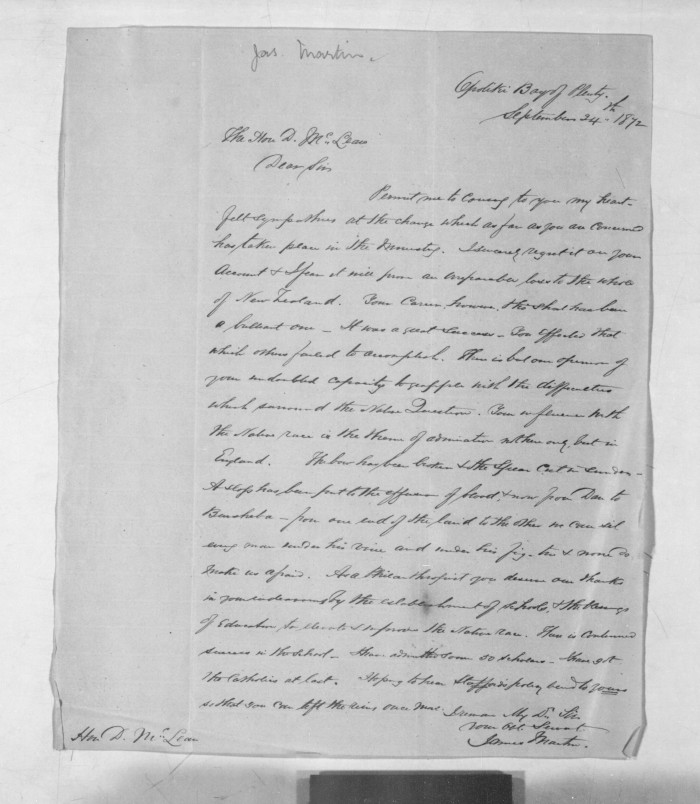 Jas. Martin.
Opotiki Bay of Plenty.
September 24th 1872
The Hon D. McLean
Dear Sir
Permit me to convey to you my heart-
felt sympathies at the change which as far as you are concerned
has taken place in the Ministry. I sincerely regret it on your
account & I fear it will prove an irreparable loss to the whole
of New Zealand. Your Career, however, tho short has been
a brilliant one - It was a great success - You effected that
which others failed to accomplish. There is but one opinion of
your undoubted capacity to grapple with the difficulties
which surround the Native Question. Your influence with
the Native race is the theme of admiration not here only, but in
England. The bow has been broken & the Spear Cut in sunder -
A stop has been put to the effusion of blood, & now from Dan to
Beersheba - from one end of the land to the other we can sit
every man under his vine and under his fig-tree & none do
make us afraid. As a Philanthropist you deserve our thanks
in your endeavours by the establishment of schools, & the blessings
of Education, to elevate & improve the Native race. There is continued
success in the school - Have admitted some 50 scholars - have got
the Catholics at last. Hoping to hear Stafford's policy bend to yours
so that you can lift the reins once more I remain My Dr Sir
your Obt. Servat.
James Martin.
Hon D. McLean